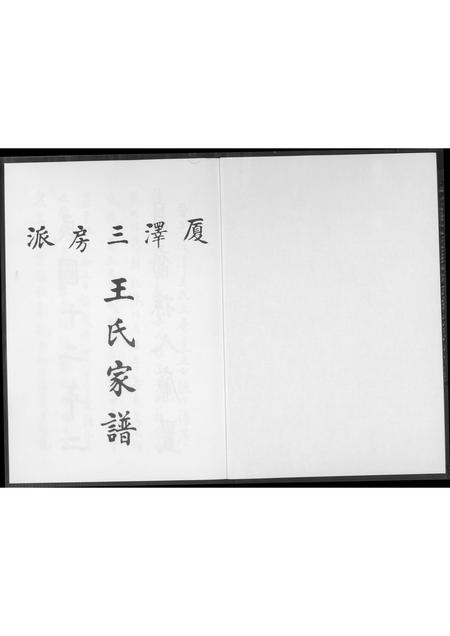 厦澤三房派
王氏家譜